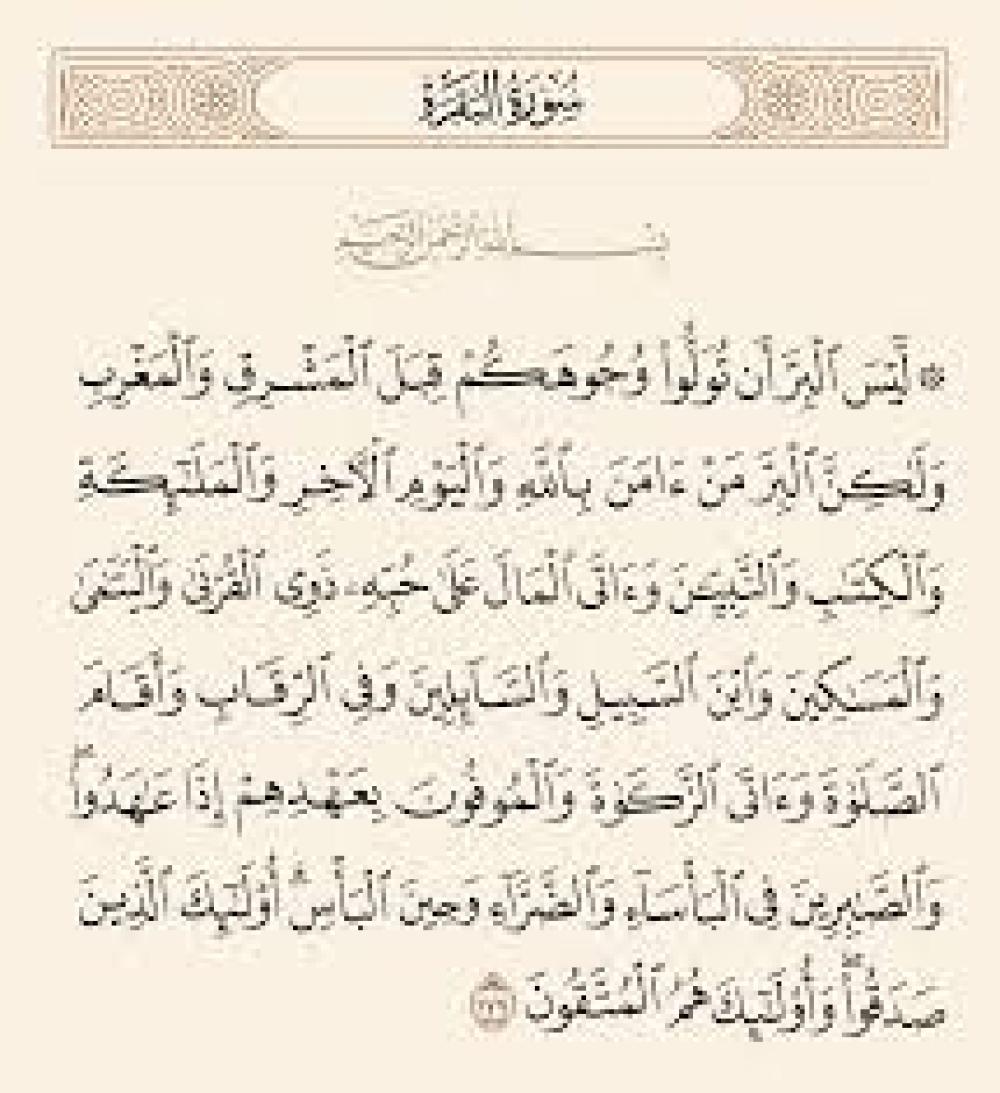 سُورَةُ البَقَرَةِ
بِسْمِ ٱللَّهِ ٱلرَّحْمَٰنِ ٱلرَّحِيمِ
۞ لَّيْسَ ٱلْبِرَّ أَن تُوَلُّوا۟ وُجُوهَكُمْ قِبَلَ ٱلْمَشْرِقِ وَٱلْمَغْرِبِ
وَلَٰكِنَّ ٱلْبِرَّ مَنْ ءَامَنَ بِٱللَّهِ وَٱلْيَوْمِ ٱلْـَٔاخِرِ وَٱلْمَلَٰٓئِكَةِ
وَٱلْكِتَٰبِ وَٱلنَّبِيِّـۧنَ وَءَاتَى ٱلْمَالَ عَلَىٰ حُبِّهِۦ ذَوِى ٱلْقُرْبَىٰ وَٱلْيَتَٰمَىٰ
وَٱلْمَسَٰكِينَ وَٱبْنَ ٱلسَّبِيلِ وَٱلسَّآئِلِينَ وَفِى ٱلرِّقَابِ وَأَقَامَ
ٱلصَّلَوٰةَ وَءَاتَى ٱلزَّكَوٰةَ وَٱلْمُوفُونَ بِعَهْدِهِمْ إِذَا عَٰهَدُوا۟ ۖ
وَٱلصَّٰبِرِينَ فِى ٱلْبَأْسَآءِ وَٱلضَّرَّآءِ وَحِينَ ٱلْبَأْسِ ۗ أُو۟لَٰٓئِكَ ٱلَّذِينَ
صَدَقُوا۟ ۖ وَأُو۟لَٰٓئِكَ هُمُ ٱلْمُتَّقُونَ